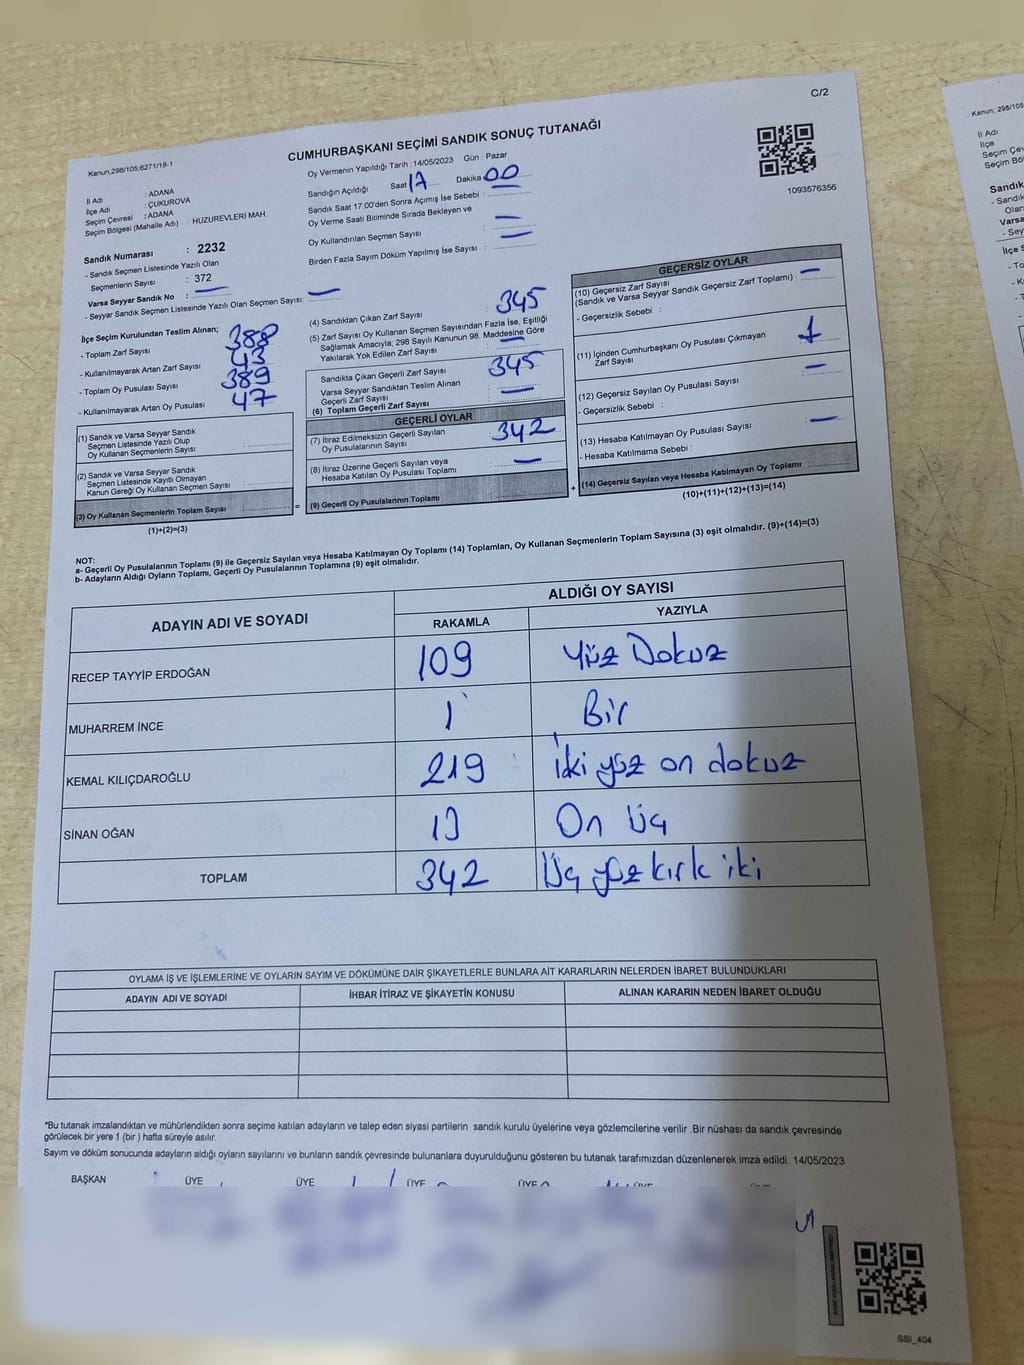 C/2
Kanun;298/105;6271/18-1
CUMHURBAŞKANI SEÇİMİ SANDIK SONUÇ TUTANAĞI
1093576356
İl Adı : ADANA
İlçe Adı : ÇUKUROVA
Seçim Çevresi : ADANA
Seçim Bölgesi (Mahalle Adı) : HUZUREVLERİ MAH.
Sandık Numarası : 2232
- Sandık Seçmen Listesinde Yazılı Olan
Seçmenlerin Sayısı : 372
Varsa Seyyar Sandık No : —
- Seyyar Sandık Seçmen Listesinde Yazılı Olan Seçmen Sayısı: —
Oy Vermenin Yapıldığı Tarih : 14/05/2023 Gün : Pazar
Sandığın Açıldığı Saat 17 Dakika 00
Sandık Saat 17.00'den Sonra Açımış İse Sebebi :
Oy Verme Saati Bitiminde Sırada Bekleyen ve
Oy Kullandırılan Seçmen Sayısı : —
Birden Fazla Sayım Döküm Yapılmış İse Sayısı : —
İlçe Seçim Kurulundan Teslim Alınan;
- Toplam Zarf Sayısı 388
- Kullanılmayarak Artan Zarf Sayısı 43
- Toplam Oy Pusulası Sayısı 389
- Kullanılmayarak Artan Oy Pusulası 47
(1) Sandık ve Varsa Seyyar Sandık
Seçmen Listesinde Yazılı Olup
Oy Kullanan Seçmenlerin Sayısı :
(2) Sandık ve Varsa Seyyar Sandık
Seçmen Listesinde Kayıtlı Olmayan
Kanun Gereği Oy Kullanan Seçmen Sayısı :
(3) Oy Kullanan Seçmenlerin Toplam Sayısı
(1)+(2)=(3)
=
(4) Sandıktan Çıkan Zarf Sayısı : 345
(5) Zarf Sayısı Oy Kullanan Seçmen Sayısından Fazla İse, Eşitliği
Sağlamak Amacıyla; 298 Sayılı Kanunun 98. Maddesine Göre
Yakılarak Yok Edilen Zarf Sayısı : —
Sandıkta Çıkan Geçerli Zarf Sayısı : 345
Varsa Seyyar Sandıktan Teslim Alınan
Geçerli Zarf Sayısı : —
(6) Toplam Geçerli Zarf Sayısı
GEÇERLİ OYLAR
(7) İtiraz Edilmeksizin Geçerli Sayılan
Oy Pusulalarının Sayısı : 342
(8) İtiraz Üzerine Geçerli Sayılan veya
Hesaba Katılan Oy Pusulası Toplamı : —
(9) Geçerli Oy Pusulalarının Toplamı
+
GEÇERSİZ OYLAR
(10) Geçersiz Zarf Sayısı
(Sandık ve Varsa Seyyar Sandık Geçersiz Zarf Toplamı) : —
- Geçersizlik Sebebi :
(11) İçinden Cumhurbaşkanı Oy Pusulası Çıkmayan
Zarf Sayısı : 1
(12) Geçersiz Sayılan Oy Pusulası Sayısı : —
- Geçersizlik Sebebi :
(13) Hesaba Katılmayan Oy Pusulası Sayısı : —
- Hesaba Katılmama Sebebi :
(14) Geçersiz Sayılan veya Hesaba Katılmayan Oy Toplamı :
(10)+(11)+(12)+(13)=(14)
NOT:
a- Geçerli Oy Pusulalarının Toplamı (9) ile Geçersiz Sayılan veya Hesaba Katılmayan Oy Toplamı (14) Toplamları, Oy Kullanan Seçmenlerin Toplam Sayısına (3) eşit olmalıdır. (9)+(14)=(3)
b- Adayların Aldığı Oyların Toplamı, Geçerli Oy Pusulalarının Toplamına (9) eşit olmalıdır.
ADAYIN ADI VE SOYADI ALDIĞI OY SAYISI
RAKAMLA YAZIYLA
RECEP TAYYİP ERDOĞAN 109 Yüz Dokuz
MUHARREM İNCE 1 Bir
KEMAL KILIÇDAROĞLU 219 İki yüz on dokuz
SİNAN OĞAN 13 On Üç
TOPLAM 342 Üç yüz kırk iki
OYLAMA İŞ VE İŞLEMLERİNE VE OYLARIN SAYIM VE DÖKÜMÜNE DAİR ŞİKAYETLERLE BUNLARA AİT KARARLARIN NELERDEN İBARET BULUNDUKLARI
ADAYIN ADI VE SOYADI İHBAR İTİRAZ VE ŞİKAYETİN KONUSU ALINAN KARARIN NEDEN İBARET OLDUĞU
*Bu tutanak imzalandıktan ve mühürlendikten sonra seçime katılan adayların ve talep eden siyasi partilerin sandık kurulu üyelerine veya gözlemcilerine verilir .Bir nüshası da sandık çevresinde
görülecek bir yere 1 (bir ) hafta süreyle asılır.
Sayım ve döküm sonucunda adayların aldığı oyların sayılarını ve bunların sandık çevresinde bulunanlara duyurulduğunu gösteren bu tutanak tarafımızdan düzenlenerek imza edildi. 14/05/2023
BAŞKAN ÜYE ÜYE ÜYE ÜYE ÜYE
SSI_404
Kanun; 298/105
İl Adı
İlçe
Seçim Çev
Seçim Böl
Sandık
- Sandık
Olan
Varsa
- Sey
İlçe S
- To
- K
- T